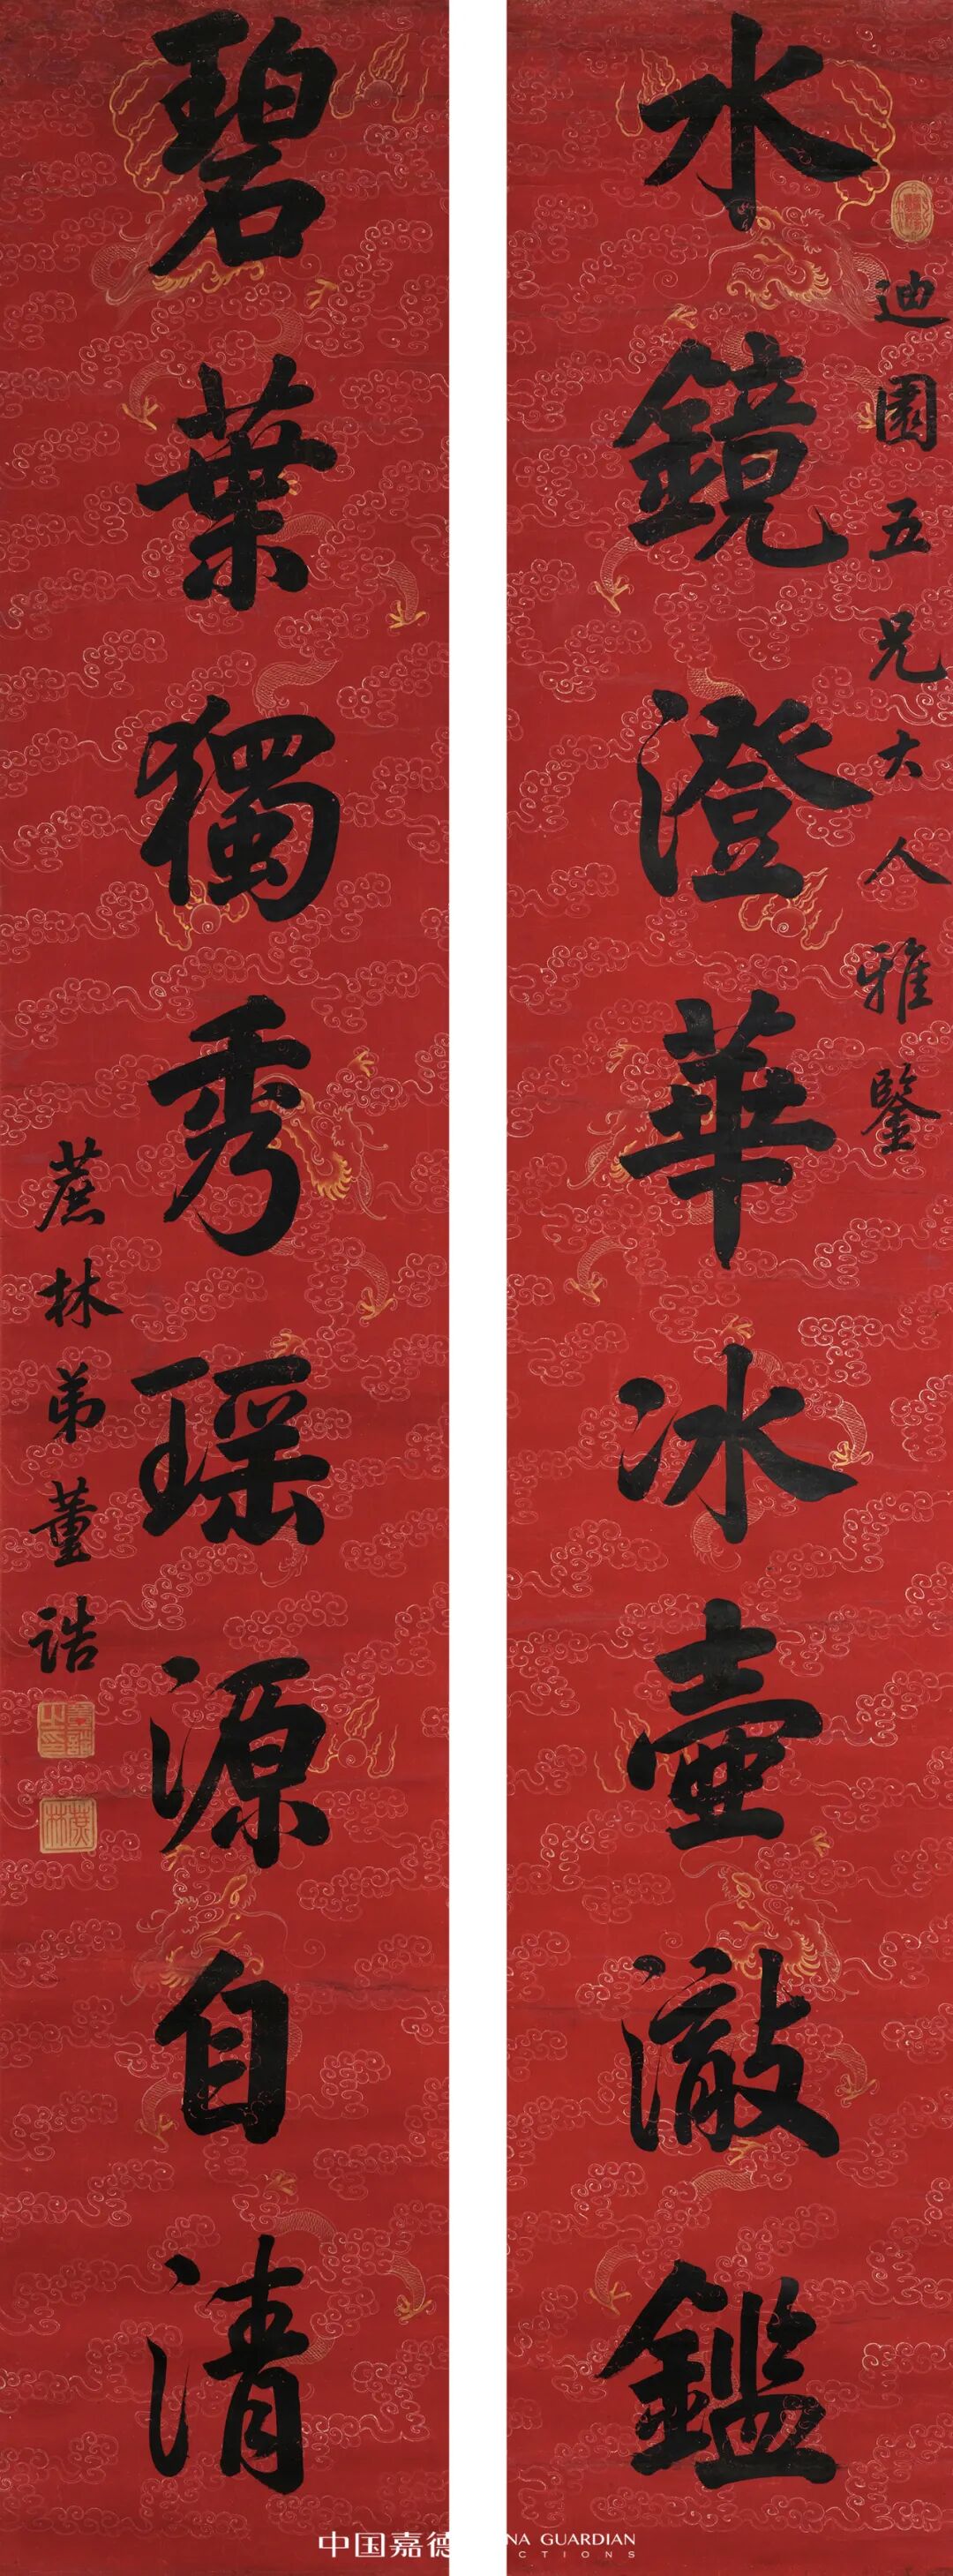 迪園五兄大人雅鑒
水鏡澄華冰壺澈鑑
碧葉獨秀瑶源自清
蔗林弟董誥
董誥之印
蔗林
中国嘉德
NA GUARDIAN
CTIONS